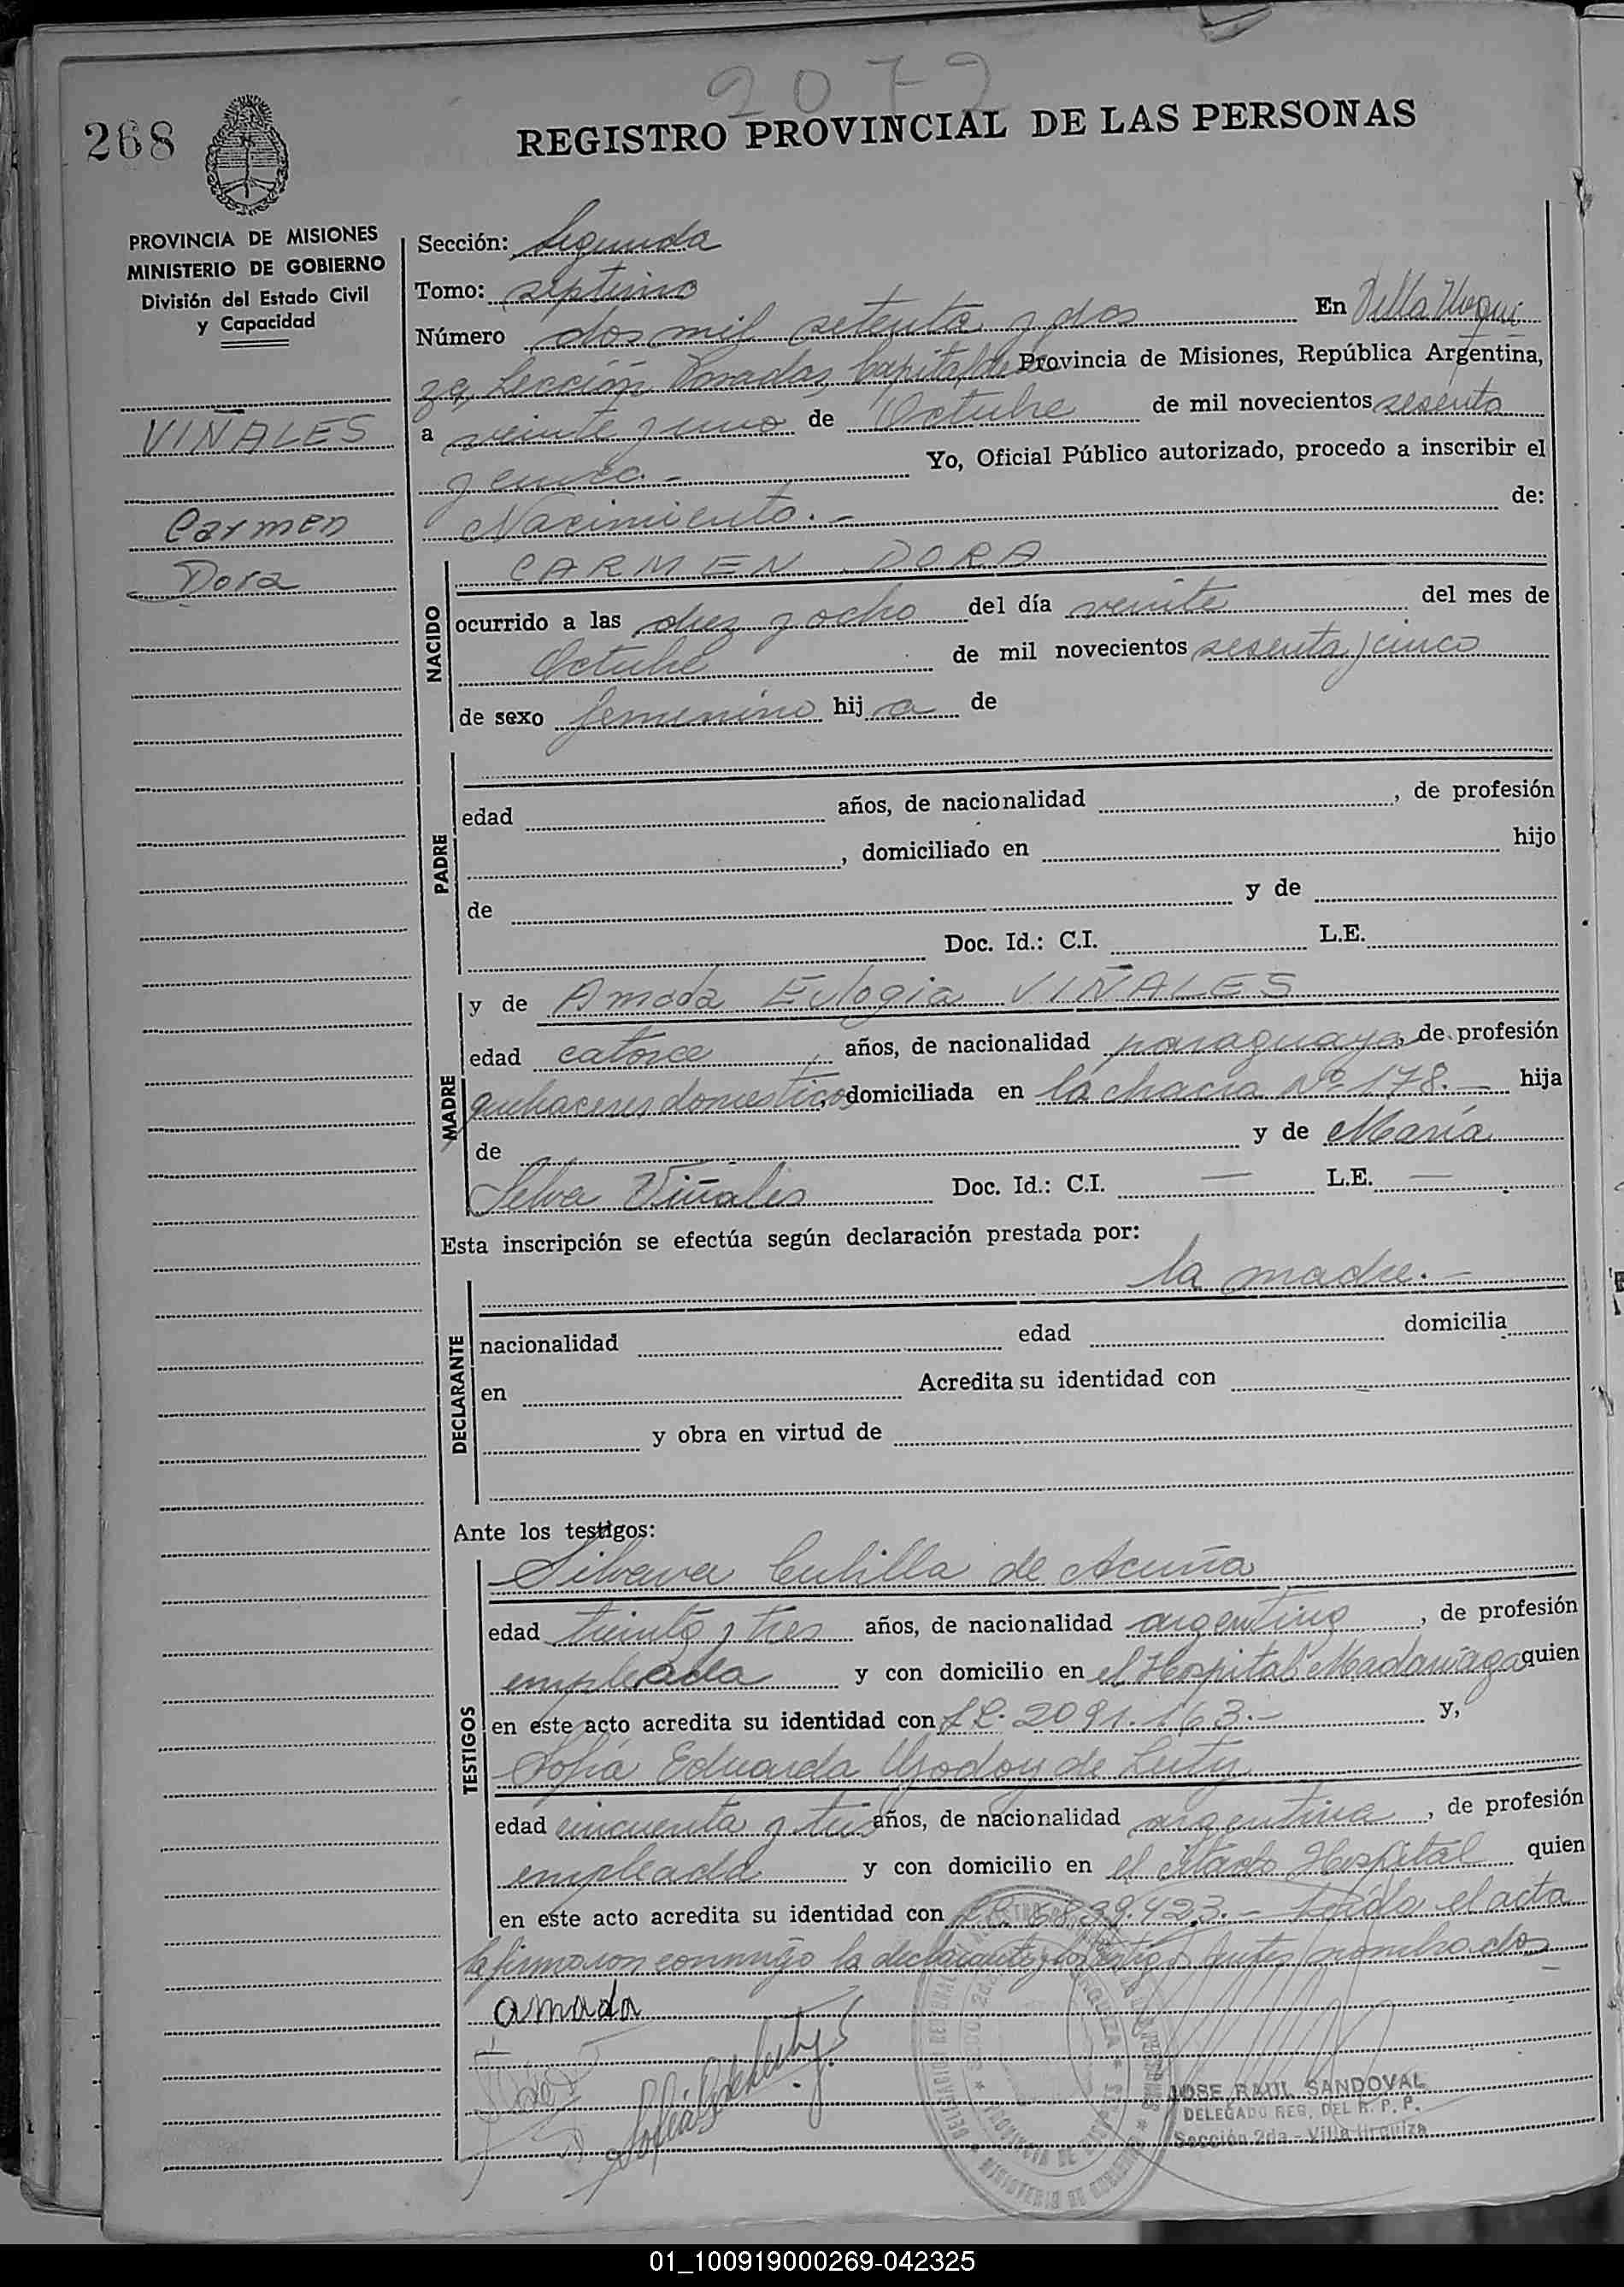 2072
268
REGISTRO PROVINCIAL DE LAS PERSONAS
PROVINCIA DE MISIONES
MINISTERIO DE GOBIERNO
División del Estado Civil
y Capacidad
VIÑALES
Carmen
Dora
Sección: Segunda
Tomo: septimo
Número dos mil setenta y dos En Villa Urqui
za, Sección Posadas, Capital de Provincia de Misiones, República Argentina,
a veinte y uno de Octubre de mil novecientos sesenta
y cinco.- Yo, Oficial Público autorizado, procedo a inscribir el
Nacimiento.- de:
NACIDO
CARMEN DORA
ocurrido a las diez y ocho del día veinte del mes de
Octubre de mil novecientos sesenta y cinco
de sexo femenino hij a de
PADRE
edad años, de nacionalidad , de profesión
, domiciliado en hijo
de y de
Doc. Id.: C.I. L.E.
MADRE
y de Amada Eulogia VIÑALES
edad catorce años, de nacionalidad paraguaya, de profesión
quehaceres domesticos, domiciliada en la chacra Nº 178.- hija
de y de María
Selva Viñales Doc. Id.: C.I. — L.E. —
Esta inscripción se efectúa según declaración prestada por:
DECLARANTE
la madre.-
nacionalidad edad domicilia
en Acredita su identidad con
y obra en virtud de
Ante los testigos:
TESTIGOS
Silvana Cubilla de Acuña
edad treinta y tres años, de nacionalidad argentina, de profesión
empleada y con domicilio en el Hospital Madariaga quien
en este acto acredita su identidad con LC. 2091.163.- y,
Sofia Eduarda Godoy de Leity
edad cincuenta y tres años, de nacionalidad argentina, de profesión
empleada y con domicilio en el citado Hospital quien
en este acto acredita su identidad con 39.423.- Leída el acta
la firmaron conmigo la declarante y los testigos antes nombrados
amada
JOSE RAUL SANDOVAL
DELEGADO REG. DEL R. P. P.
Sección 2da - Villa Urquiza
01_100919000269-042325